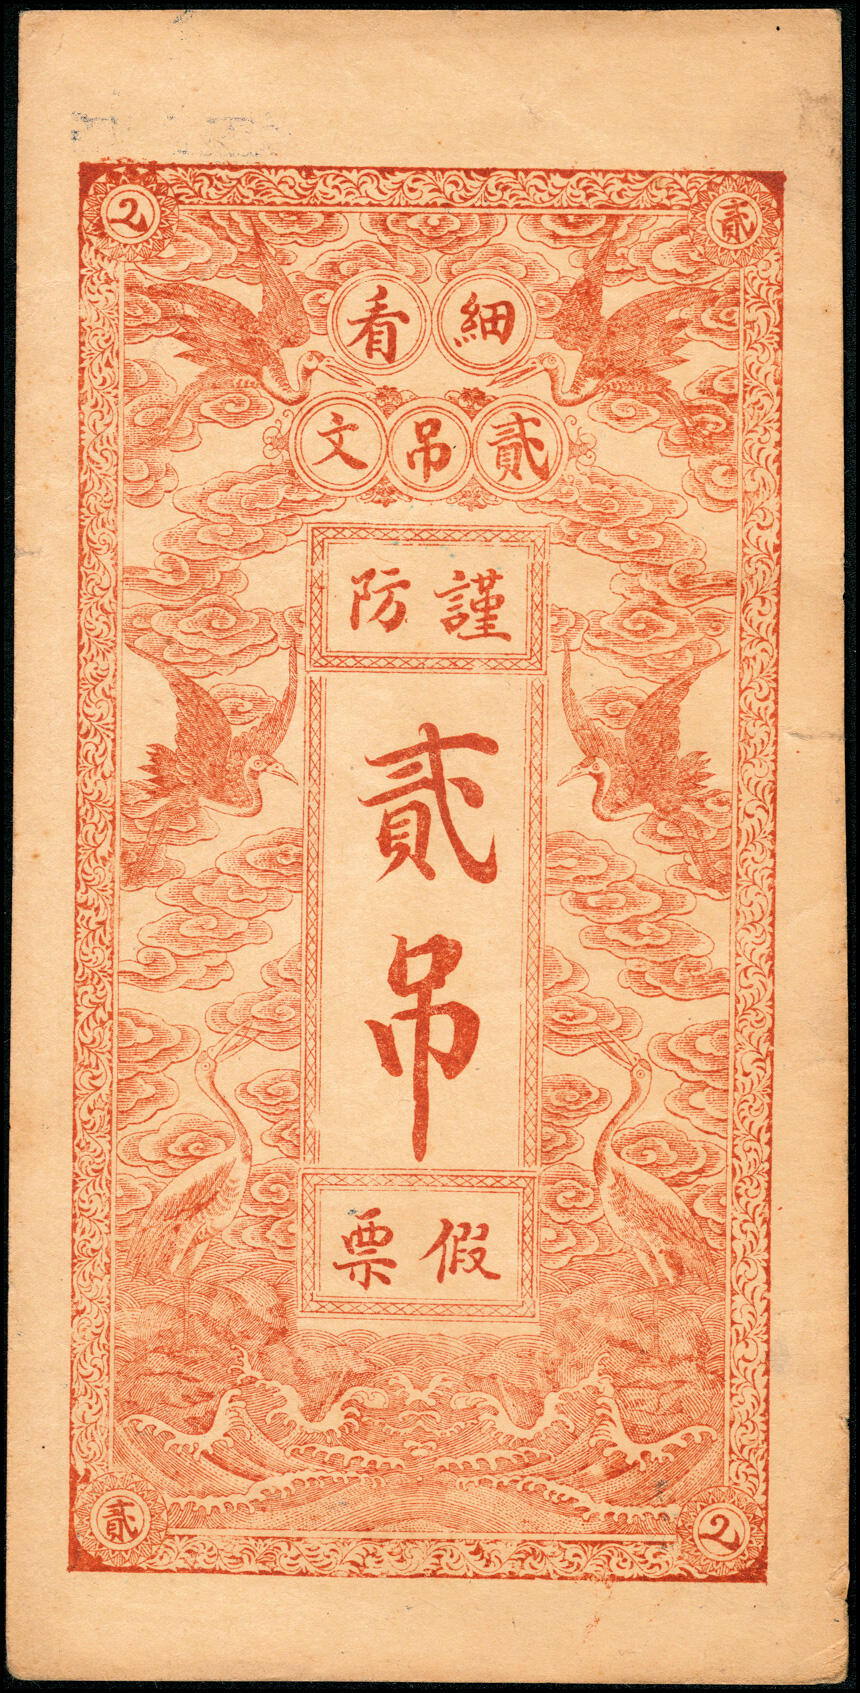 2 貳
細看
貳吊文
謹防
貳吊
假票
貳 2